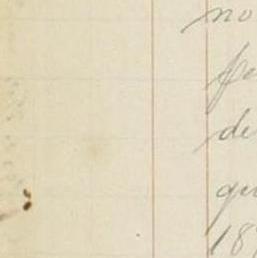 no
fe
de
qu
18